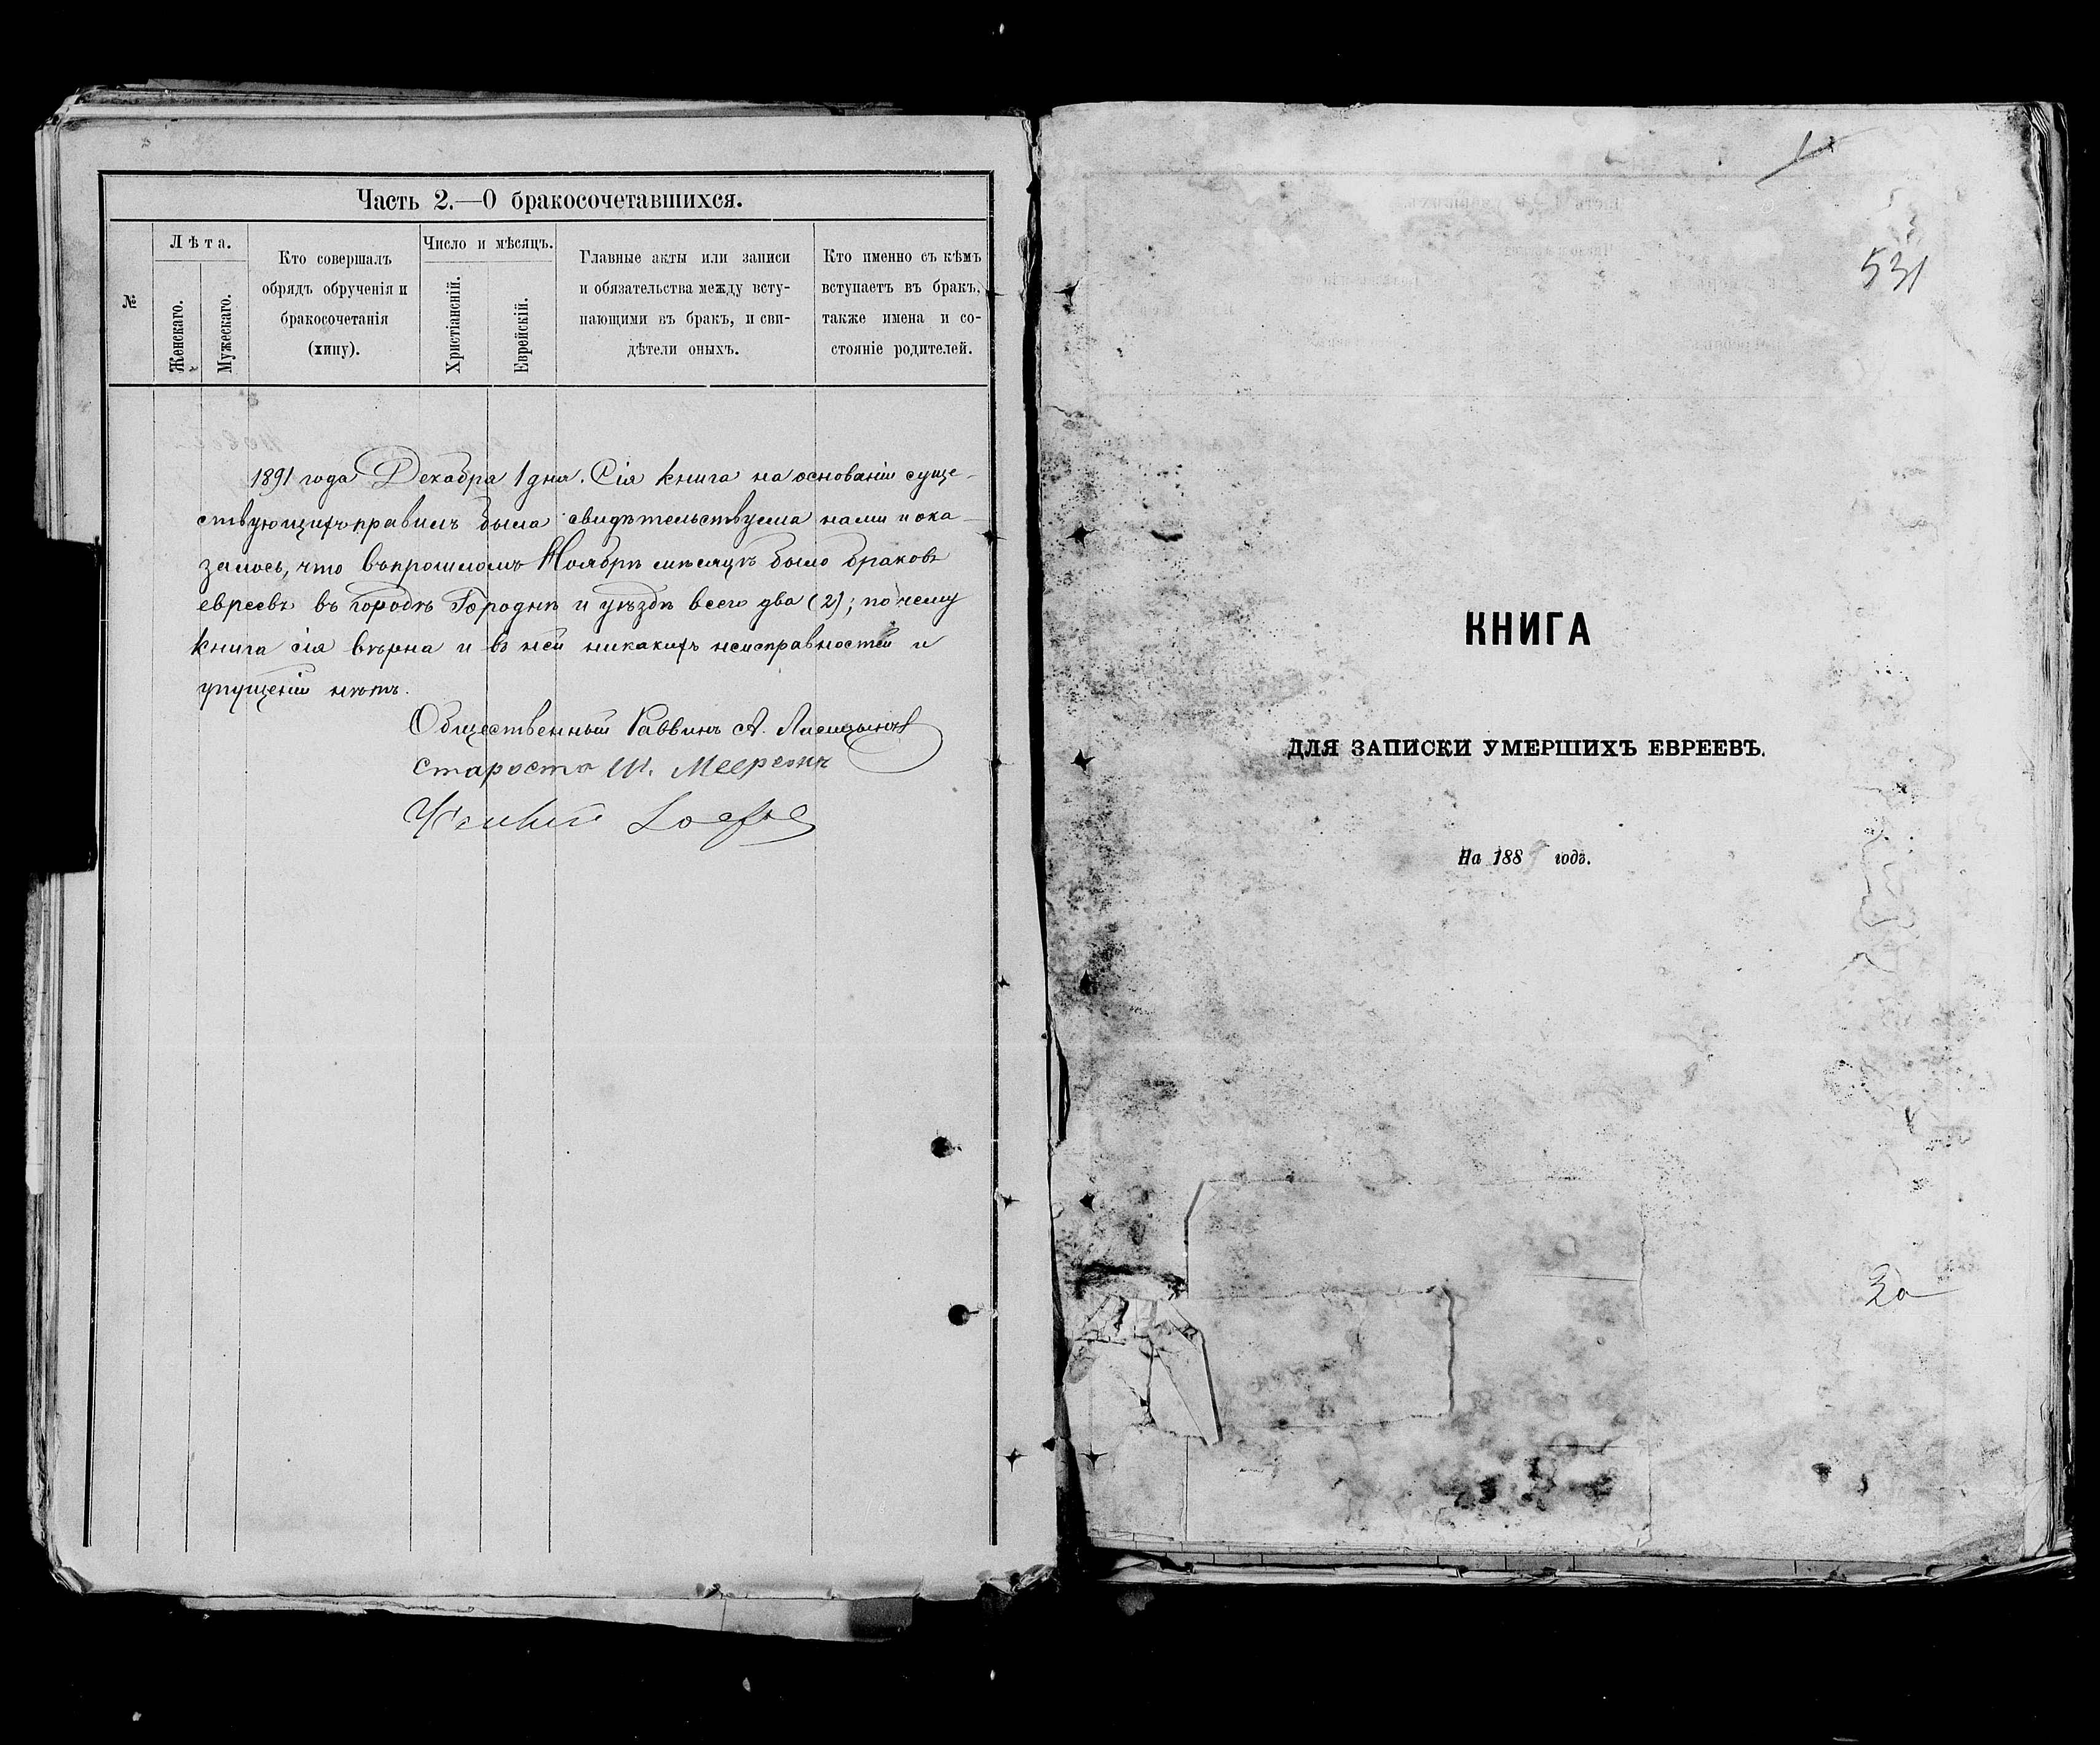 Часть 2.—О бракосочетавшихся.
№
Лѣта.
Женскаго.
Мужескаго.
Кто совершалъ
обрядъ обрученія и
бракосочетанія
(хипу).
Число и мѣсяцъ.
Христіанскій.
Еврейскій.
Главные акты или записи
и обязательства между всту-
пающими въ бракъ, и сви-
дѣтели оныхъ.
Кто именно съ кѣмъ
вступаетъ въ бракъ,
также имена и со-
стояніе родителей.
1891 года Декабря 1 дня. Сія книга на основаніи суще-
ствующихъ правилъ была свидѣтельствуема нами и ока-
залось, что въ прошломъ Ноябрѣ мѣсяцѣ было браковъ
евреевъ въ городѣ Городнѣ и уѣздѣ всего два (2); почему
книга сія вѣрна и въ ней никакихъ неисправностей и
упущеній нѣтъ.
Общественный Раввинъ А.
Староста Ш. Меерсонъ
531
КНИГА
ДЛЯ ЗАПИСКИ УМЕРШИХЪ ЕВРЕЕВЪ.
На 1889 годъ.